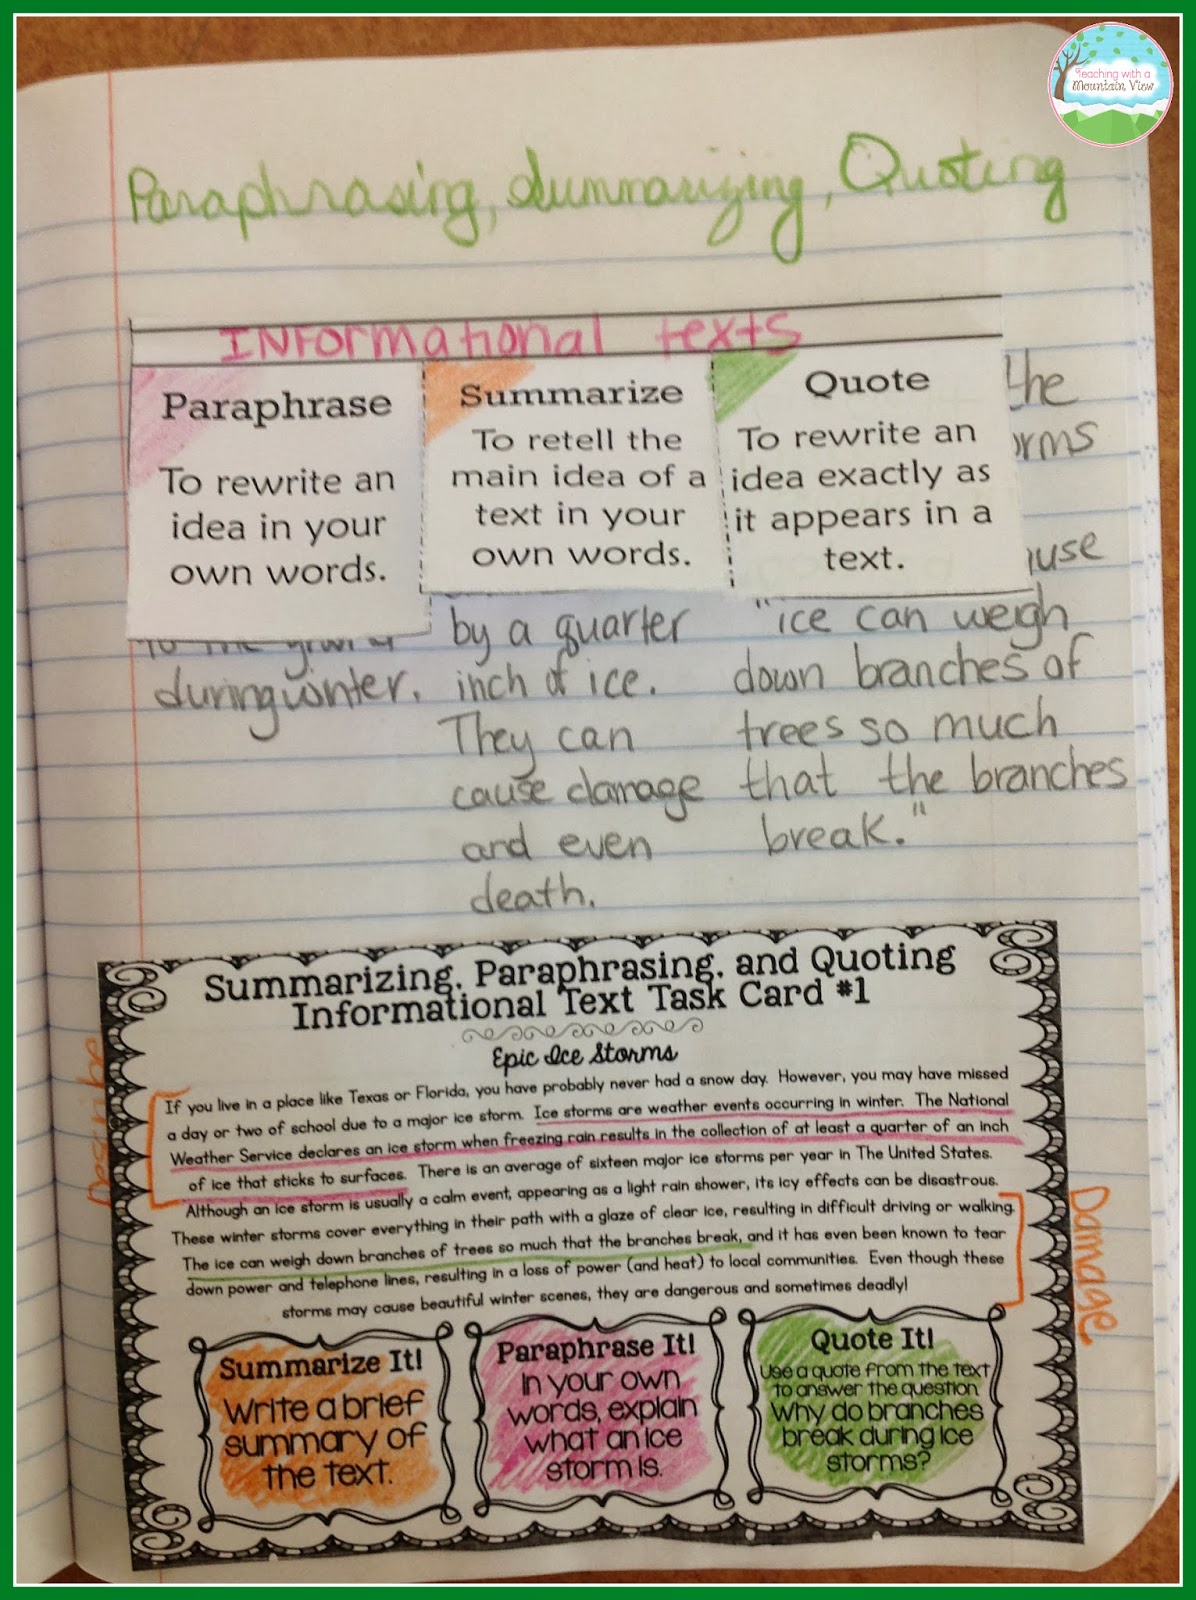 Teaching with a
Mountain View
Paraphrasing, Summarizing, Quoting
Informational texts
Paraphrase
To rewrite an
idea in your
own words.
Summarize
To retell the
main idea of a
text in your
own words.
Quote
To rewrite an
idea exactly as
it appears in a
text.
the
during winter.
by a quarter
inch of ice.
They can
cause damage
and even
death.
"ice can weigh
down branches of
trees so much
that the branches
break."
Summarizing, Paraphrasing, and Quoting
Informational Text Task Card #1
Epic Ice Storms
If you live in a place like Texas or Florida, you have probably never had a snow day. However, you may have missed
a day or two of school due to a major ice storm. Ice storms are weather events occurring in winter. The National
Weather Service declares an ice storm when freezing rain results in the collection of at least a quarter of an inch
of ice that sticks to surfaces. There is an average of sixteen major ice storms per year in The United States.
Although an ice storm is usually a calm event, appearing as a light rain shower, its icy effects can be disastrous.
These winter storms cover everything in their path with a glaze of clear ice, resulting in difficult driving or walking.
The ice can weigh down branches of trees so much that the branches break, and it has even been known to tear
down power and telephone lines, resulting in a loss of power (and heat) to local communities. Even though these
storms may cause beautiful winter scenes, they are dangerous and sometimes deadly!
Damage
Summarize It!
Write a brief
summary of
the text.
Paraphrase It!
In your own
words, explain
what an ice
storm is.
Quote It!
Use a quote from the text
to answer the question.
Why do branches
break during ice
storms?